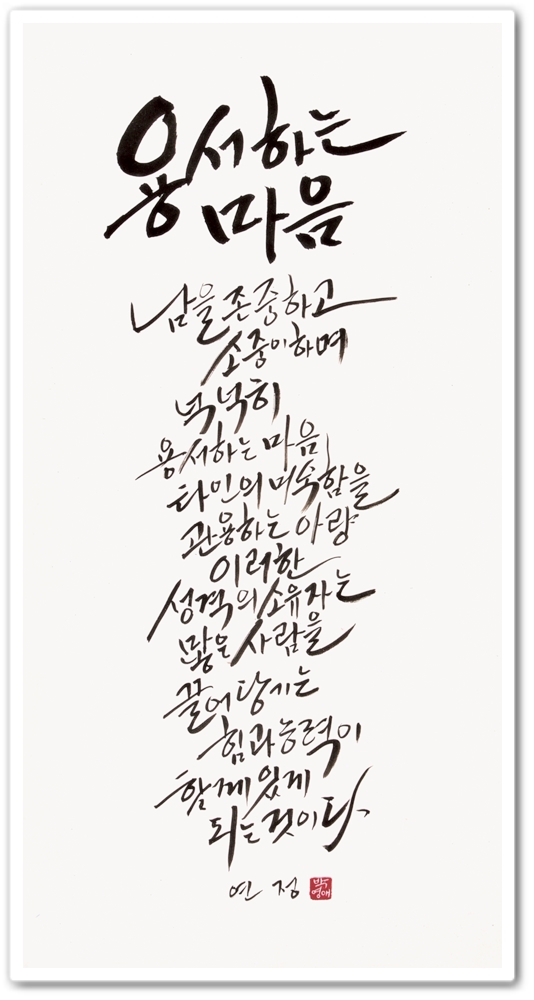 용서하는
마음
남을 존중하고
소중이하며
넉넉히
용서하는 마음
타인의 미숙함을
관용하는 아량
이러한
성격의 소유자는
많은 사람을
끌어 당기는
힘과 능력이
함께 있게
되는 것이다
연정 박영애